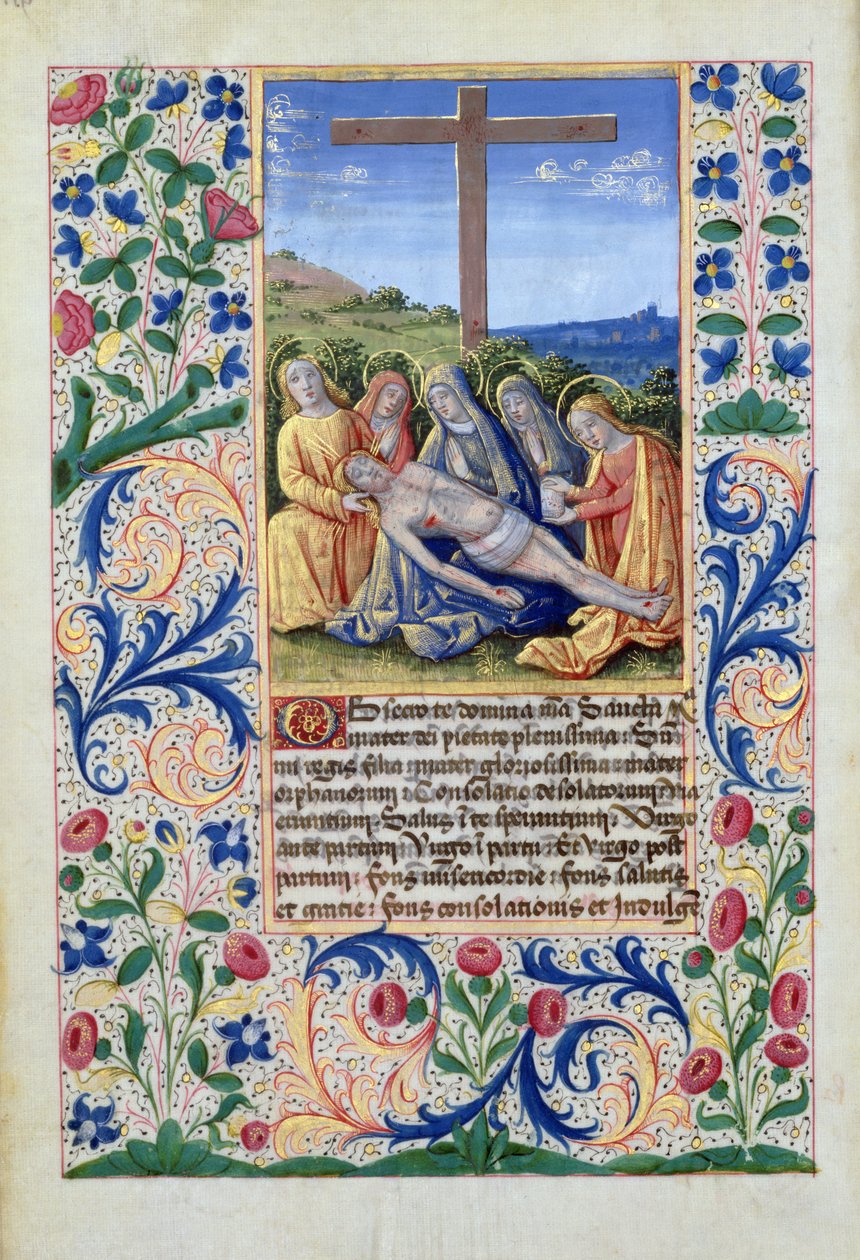 Obsecro te domina mia Sancta Ma
mater dei pietate plenissima : Sum
mi regis filia : mater gloriosissima : mater
orphanorum : Consolatio desolatorum : via
errantium : Salus i te sperantium : Virgo
ante partum Virgo i partu : Et virgo post
partum : fons misericordie : fons salutis
et gracie : fons consolationis et Indulgen